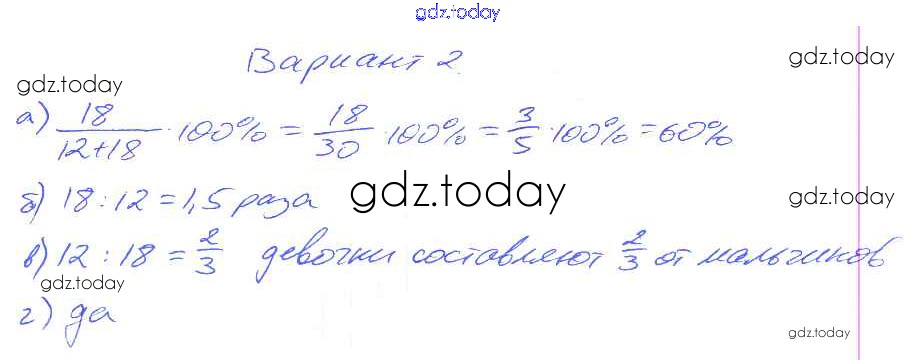 gdz.today
Вариант 2.
gdz.today
gdz.today
а) 18/(12+18) · 100% = 18/30 · 100% = 3/5 · 100% = 60%
б) 18 : 12 = 1,5 раза
gdz.today
gdz.today
в) 12 : 18 = 2/3 девочки составляют 2/3 от мальчиков
gdz.today
г) да
gdz.today